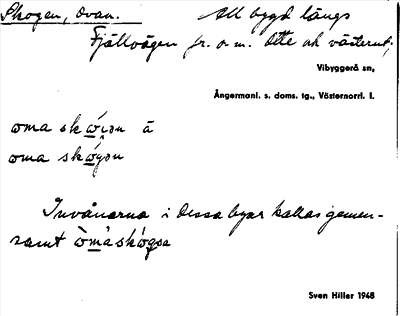 Skogen, ovan. All bygd längs
Fjällvägen fr. o. m. Ötte och västerut;
Vibyggerå sn,
Ångermanl. s. doms. tg., Västernorrl. l.
oma sk
oma sk
Invånarna i dessa byar kallas gemen-
samt
Sven Hiller 1948